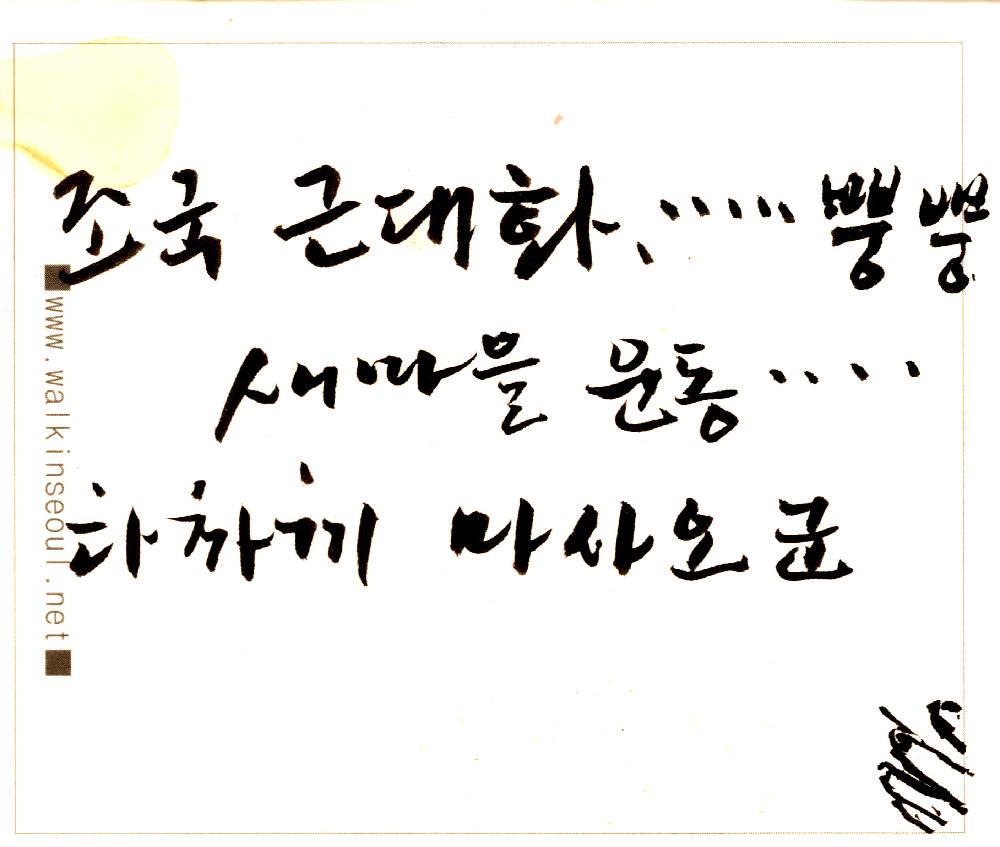 조국 근대화, ...... 뿡 뿡
새마을 운동....
다까끼 마사오 군
www.walkinseoul.net